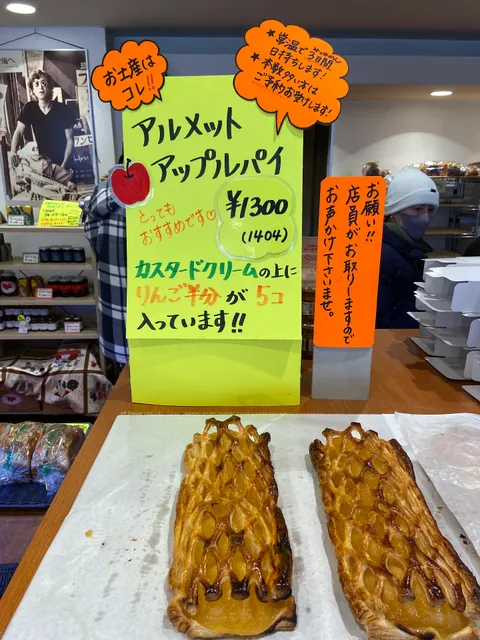 お土産は
コレ!!
★常温で3日間
日持ちします!
★本数多い方は
ご予約お受けします!
アルメット
アップルパイ
¥1300
(1404)
とっても
おすすめです♡
カスタードクリームの上に
りんご半分が5コ
入っています!!
お願い!!
店員がお取りしますので
お声かけ下さいませ。